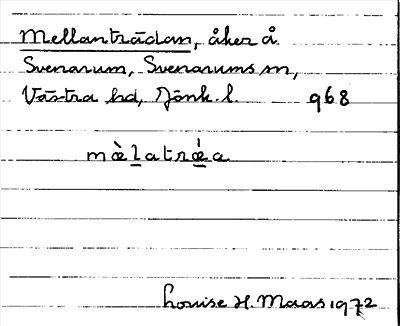 Mellanträdan, åker å
Svenarum, Svenarums sn,
Västra hd, Jönk. l. 968
mæ̀l̲atrǽ̲a
Louise H. Maas 1972